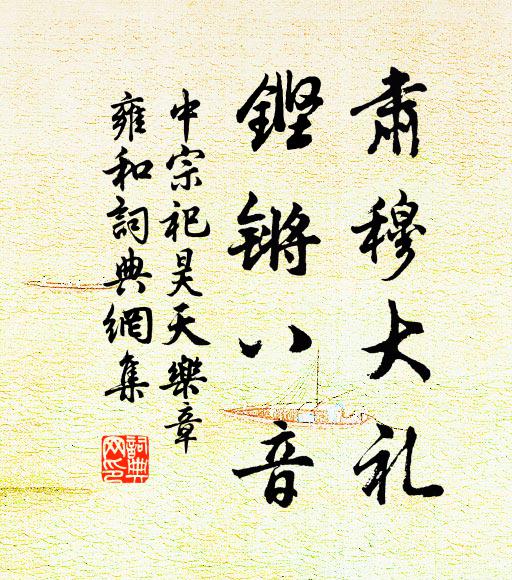 肅穆大礼
鏗锵八音
中宗祀昊天樂章
雍和詞典網集
詞典
网印